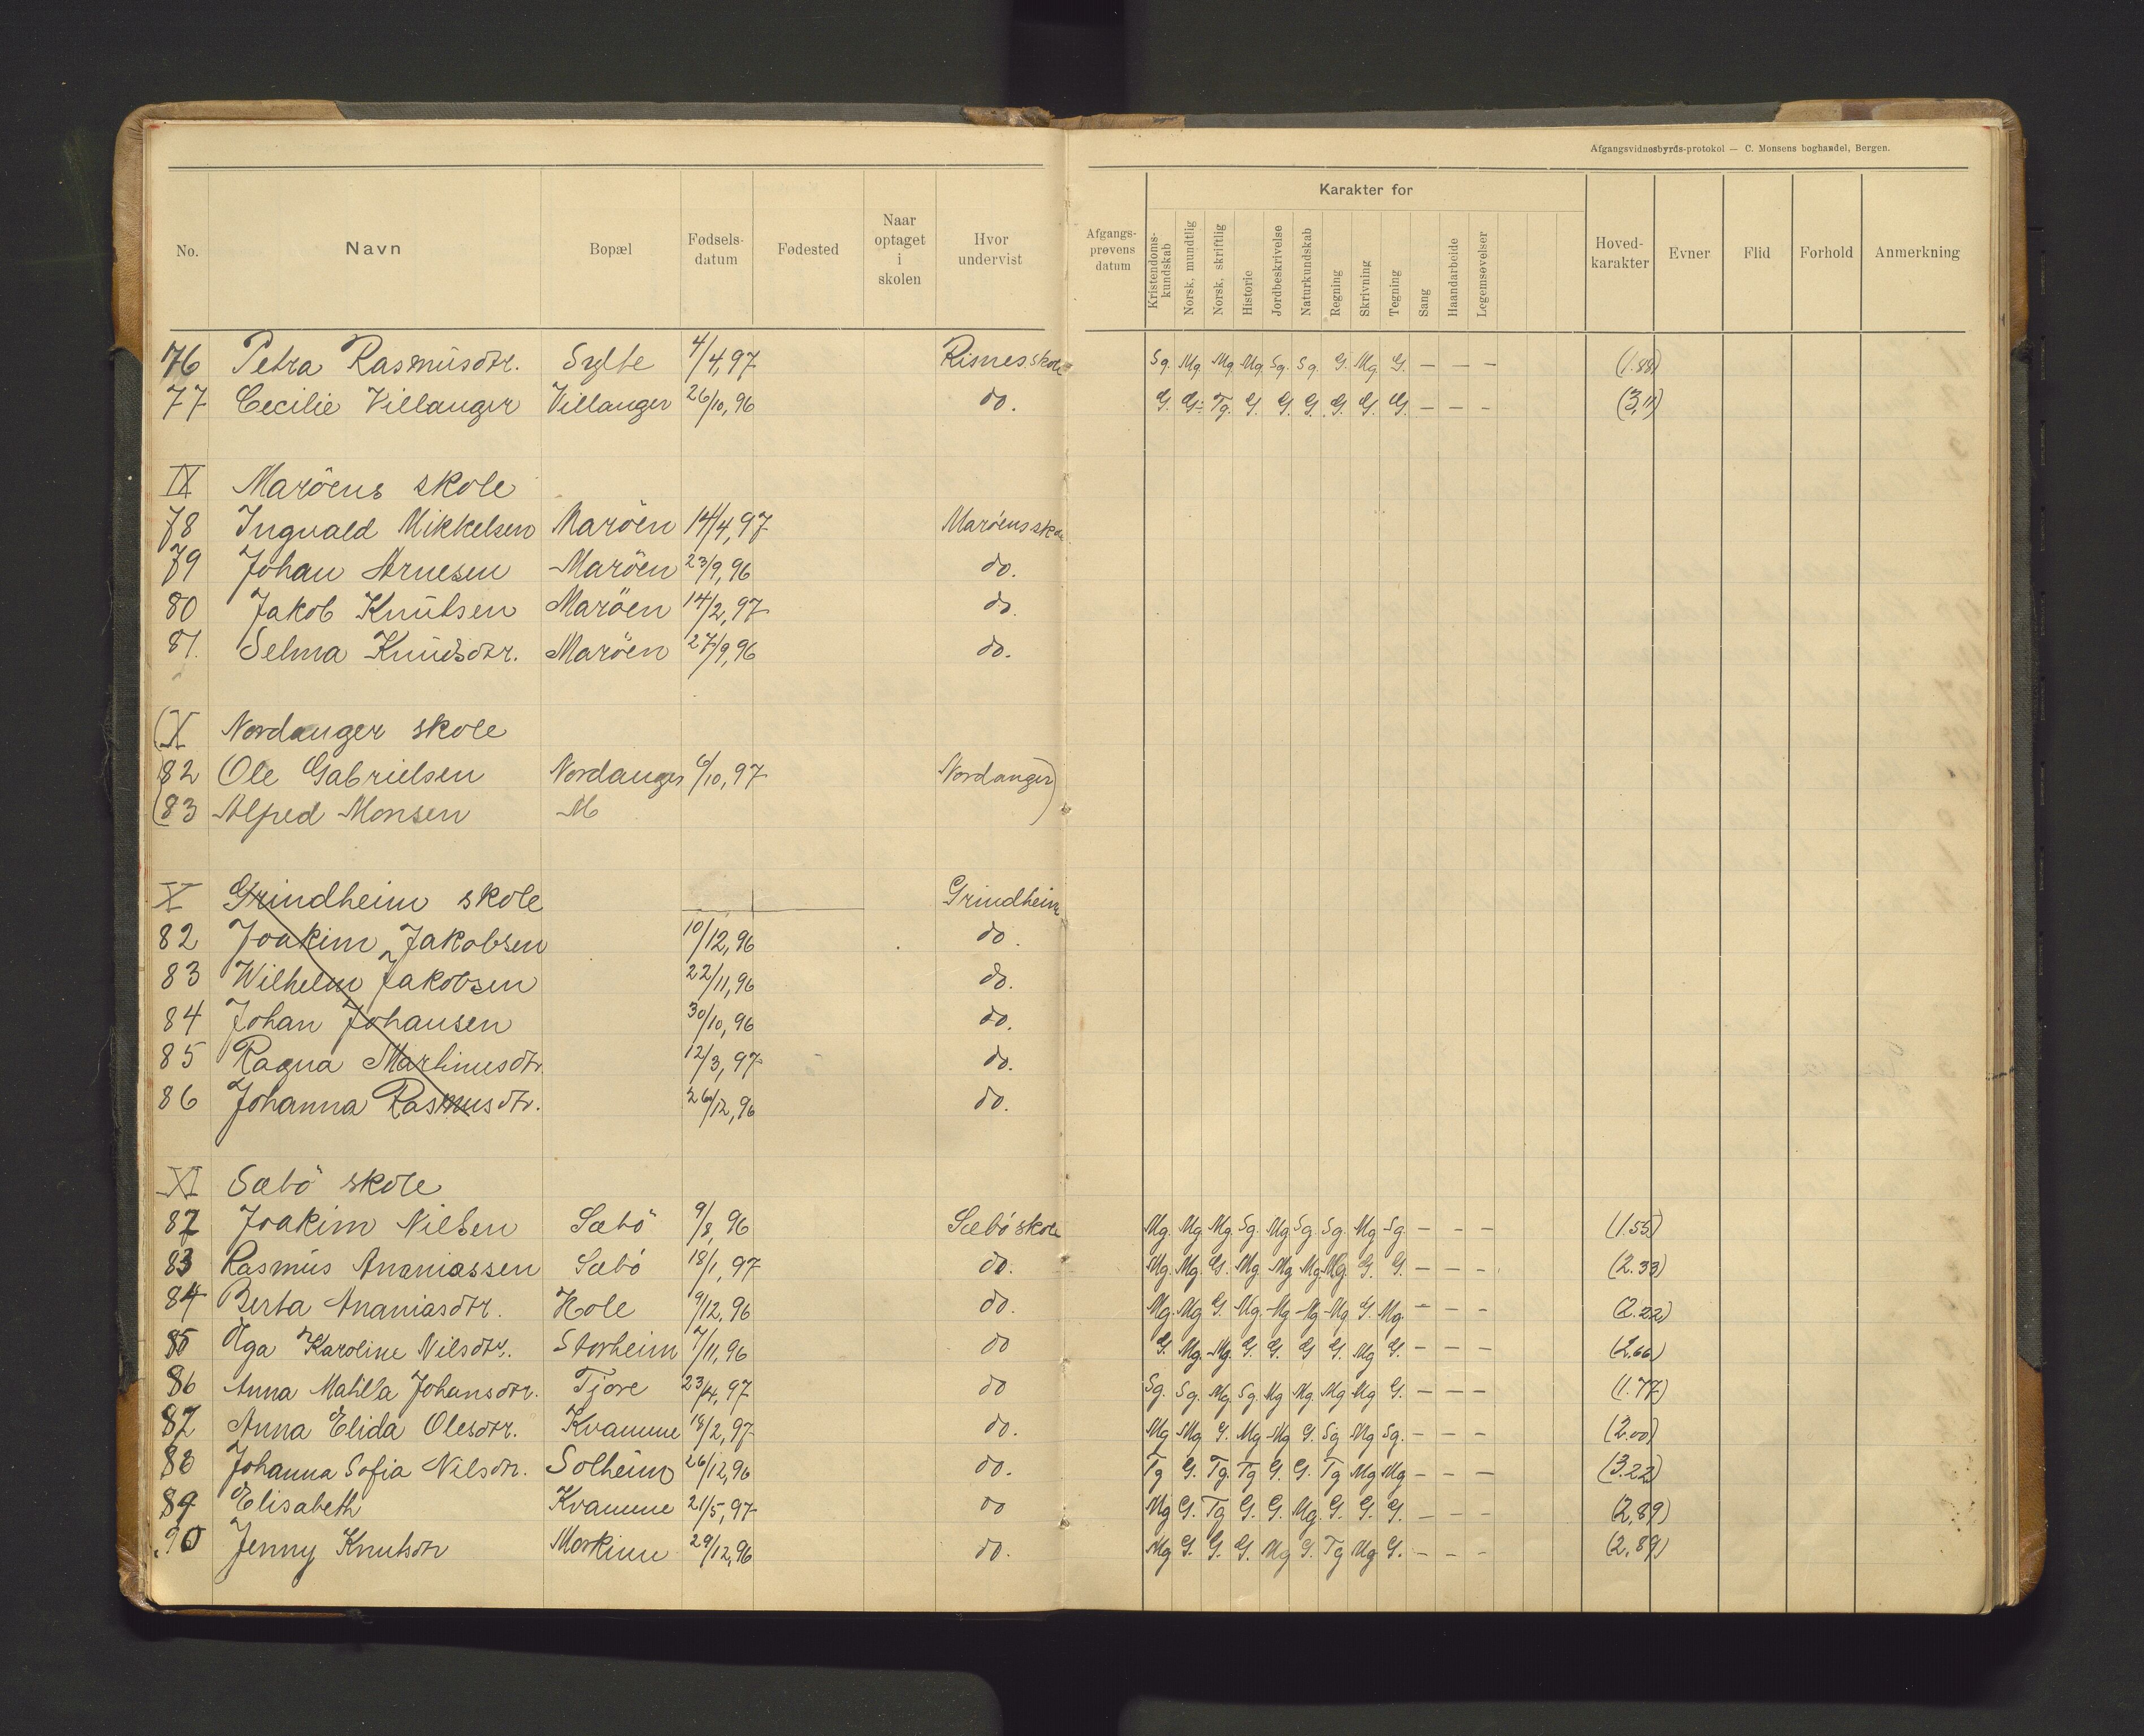 Afgangsvidnesbyrds-protokol — C. Monsens boghandel, Bergen.
No. Navn Bopæl Fødsels-datum Fødested Naar optaget i skolen Hvor undervist Afgangs-prøvens datum Karakter for Kristendoms-kundskab Norsk, mundtlig Norsk, skriftlig Historie Jordbeskrivelse Naturkundskab Regning Skrivning Tegning Sang Haandarbeide Legemsøvelser Hoved-karakter Evner Flid Forhold Anmerkning
76 Petra Rasmusdtr. Sylte 4/4,97 Risnes skole Sg. Mg. Mg. Mg. Sg. Sg. G. Mg. G. — — — (1.88)
77 Cecilie Villanger Villanger 26/10,96 do. G. G. Tg. G. G. G. G. G. G. — — — (3,11)
IX Maröens skole
78 Ingvald Mikkelsen Maröen 14/4,97 Maröens skole
79 Johan Arnesen Maröen 23/9,96 do.
80 Jakob Knutsen Maröen 14/2,97 do.
81. Selma Knudsdtr. Maröen 27/9,96 do.
(X Nordanger skole
(82 Ole Gabrielsen Nordanger 6/10,97 Nordanger)
(83 Alfred Monsen M )
X Grindheim skole Grindheim
82 Joakim Jakobsen 10/12,96 do.
83 Wilhelm Jakobsen 22/11,96 do.
84 Johan Johansen 30/10,96 do.
85 Ragna Martinusdtr. 12/3,97 do.
86 Johanna Rasmusdtr. 26/12,96 do.
XI Sæbö skole
82 Joakim Nilsen Sæbö 9/8,96 Sæbö skole Mg. Mg Mg Sg. Mg Sg. Sg. Mg Sg. — — — (1.55)
83 Rasmus Ananiassen Sæbö 18/1,97 do. Mg. Mg. G. Mg Mg Mg. Mg. G. G. — — — (2.33)
84 Berta Ananiasdtr. Hole 9/12,96 do. Mg. Mg G. Mg. Mg Mg Mg G. Mg. — — — (2.22)
85 Olga Karoline Nilsdtr. Storheim 7/11,96 do G. Mg. Mg. G. G. G G. Mg G. — — — (2,66)
86 Anna Matilla Johansdtr. Tjore 23/4,97 do Sg. Sg. Mg Sg. Mg Mg. Mg Mg G. — — — (1.77)
87 Anna Elida Olesdtr. Kvamme 18/2,97 do. Mg Mg G. Mg Mg G. Sg Mg Sg. — — — (2.00)
88 Johanna Sofia Nilsdtr. Solheim 26/12,96 do. Tg G. Tg. Tg G. G. Tg Mg Mg — — — (3.22)
89 Elisabeth Kvamme 21/5,97 do Mg G. Tg G. G. Mg. G. G. G. — — — (2,89)
90 Jenny Knutsdtr Morkim 29/12,96 do. Mg G. G. G. Mg G. Tg Mg G. — — — (2,89)